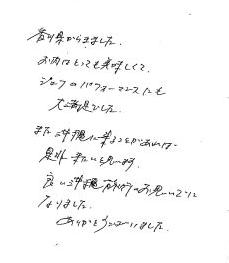 香川県からきました。
お肉はとっても美味しくて、
シェフのパフォーマンスにも
大満足でした。
また沖縄に来ることがあれば
是非来たいと思います。
良い沖縄旅行の思い出に
なりました。
ありがとうございました。